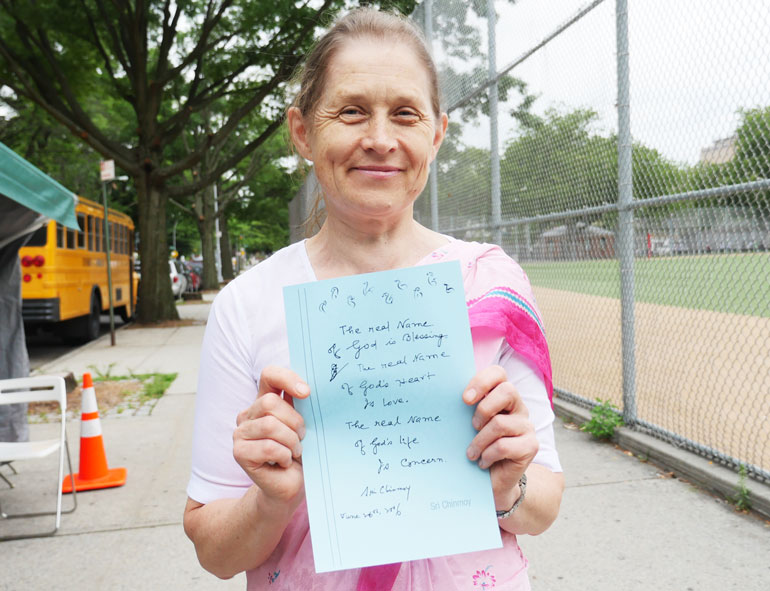 The real Name
of God is Blessing.
The real Name
of God's Heart
Is Love.
The real Name
of God's life
Is Concern
Sri Chinmoy
June
Sri Chinmoy